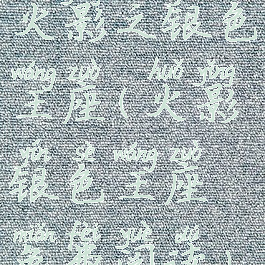 火影之银色
wáng zuò huǒ yǐng
王座（火影
yín sè wáng zuò
银色王座